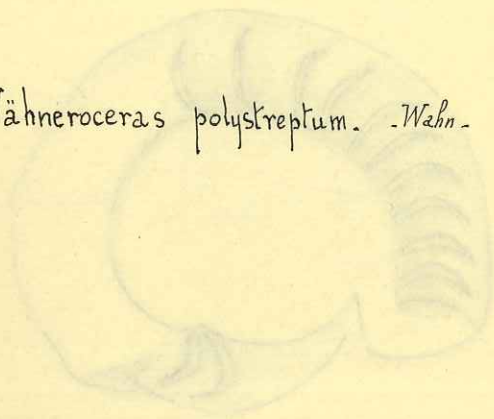 ähneroceras polystreptum. - Wahn -